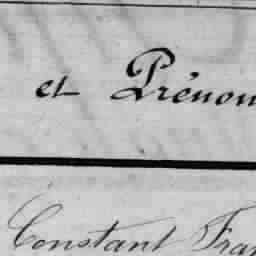 et Prénom
Constant Fran